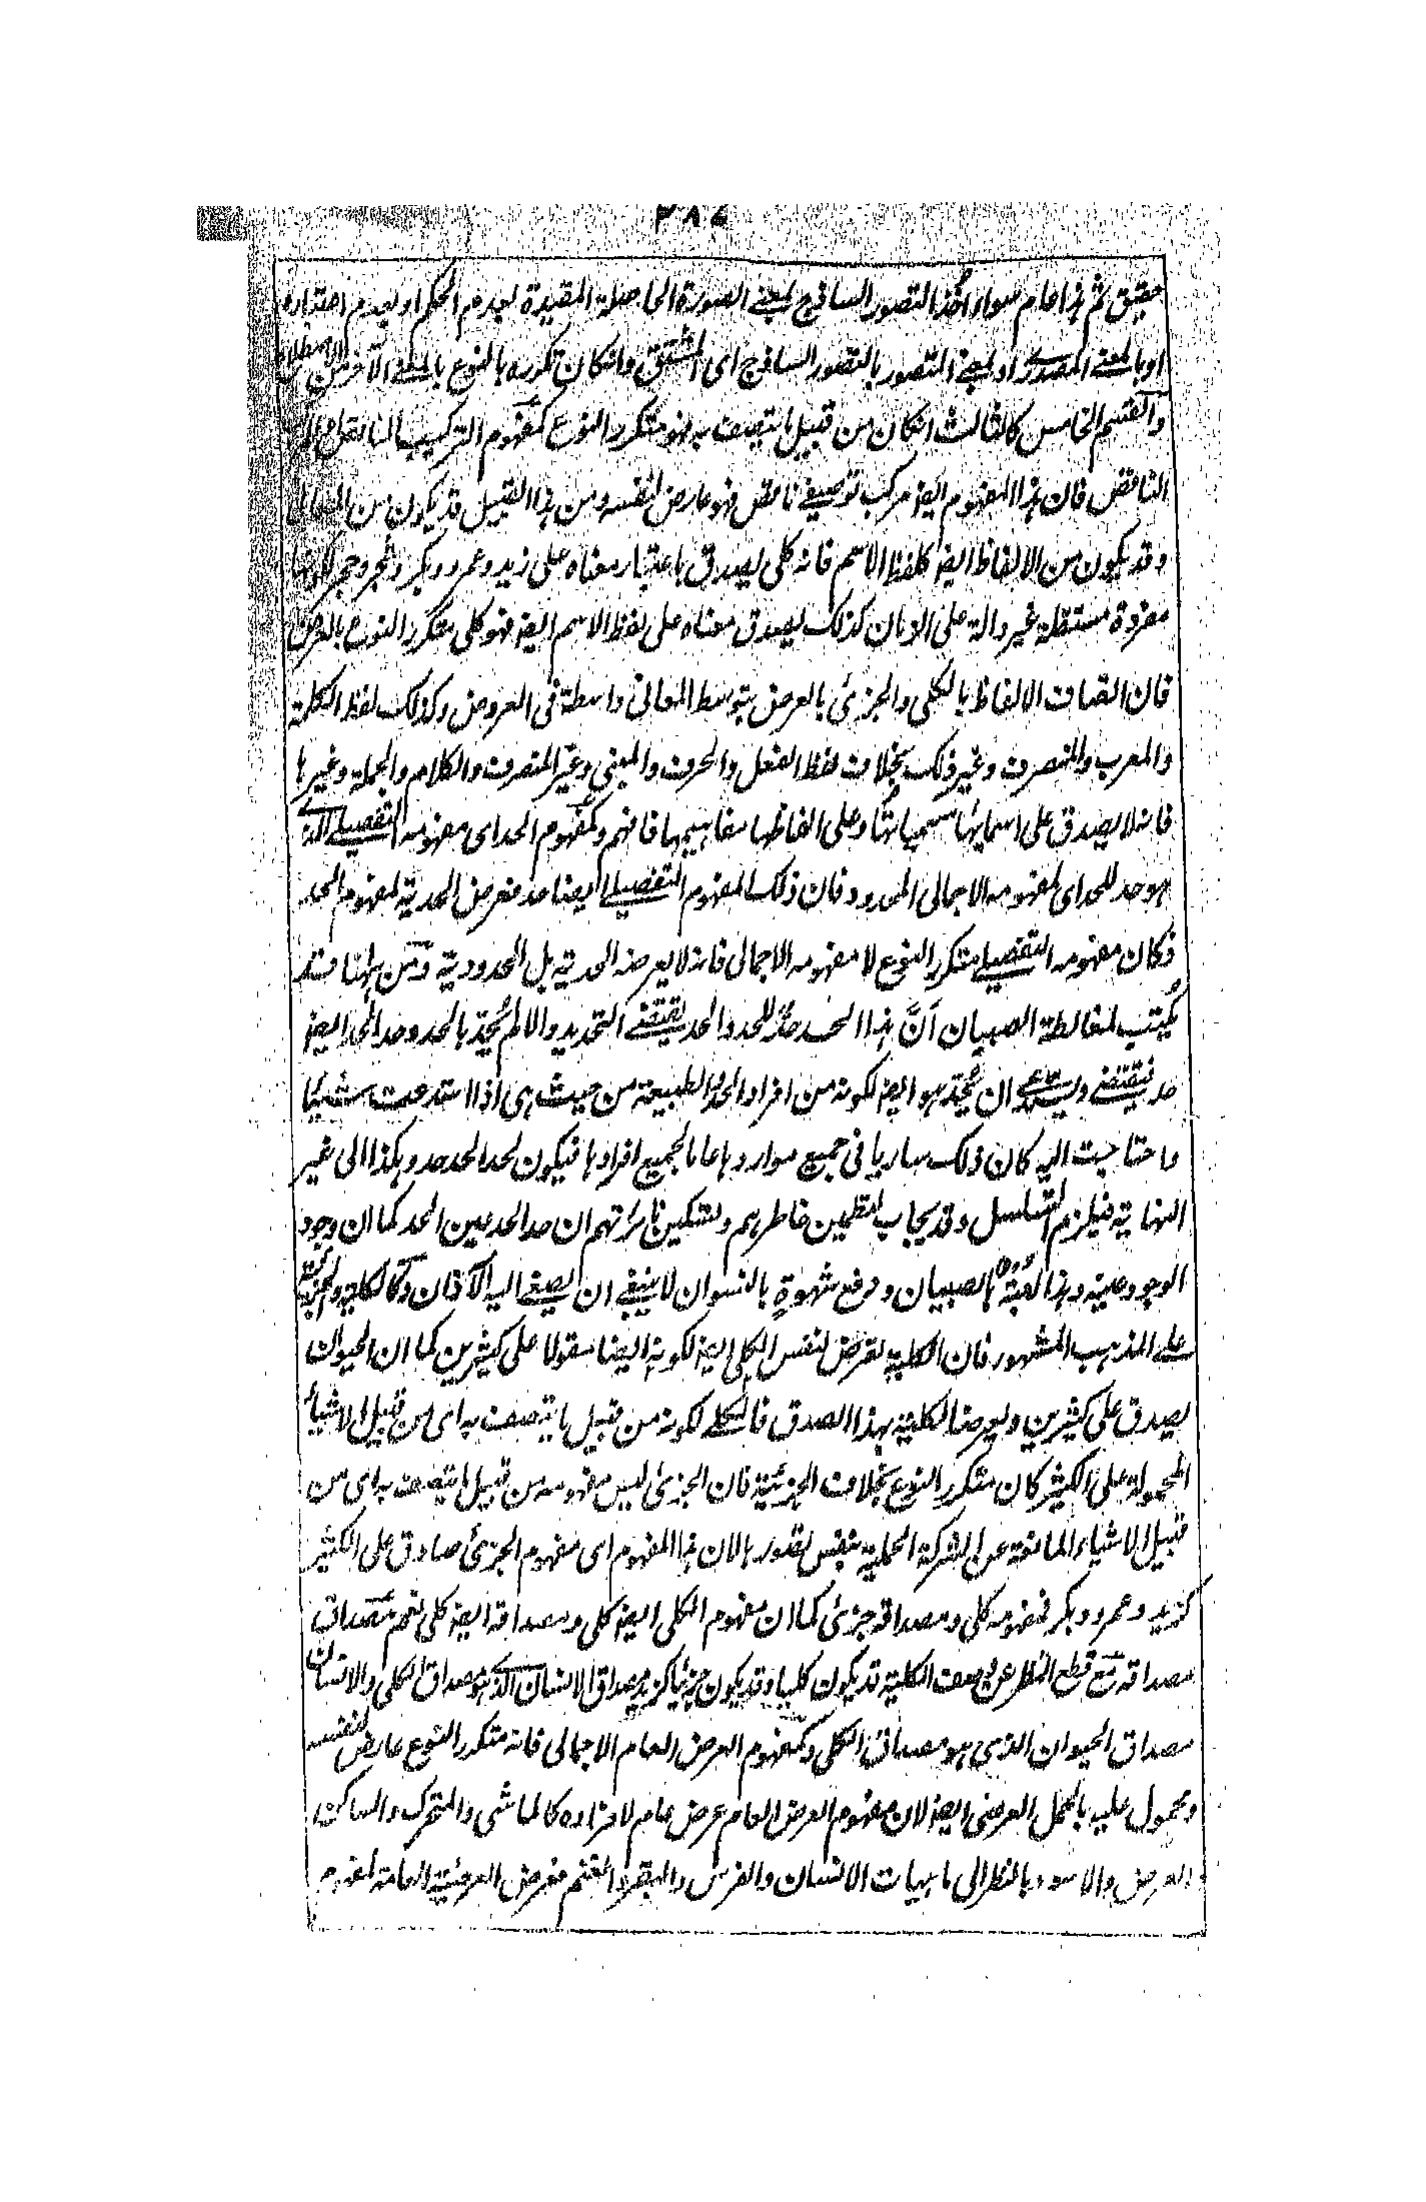 ٣٨٧
حقيق ثم هذا عام سواء أخذ التصور الساذج بمعنے الصورة الحاصلة المقيدة بعدم الحكم او بعدم اعتباره
او بالمعنے المصدرے او بمعنے المتصور بالتصور الساذج اى المشتق وانكان تكرره بالنوع بالمعنے الآخر من
والقسم الخامس كالثالث انكان من قبيل ما يتصف به فهو متكرر النوع كمفهوم التركيب الناقص
الناقص فان هذا المفهوم ايضا مركب توصيفے ناقص فهو عارض لنفسه ومن هذا القبيل قد يكون من
وقد يكون من الالفاظ ايضا كلفظ الاسم فانه كلى يصدق باعتبار معناه على زيد وعمرو وبكر وشجر وحجر لكونها
مفردة مستقلة غير دالة على الزمان كذلك يصدق معناه على لفظ الاسم ايضا فهو كلى متكرر النوع بالعرض
فان اتصاف الالفاظ بالكلى والجزئى بالعرض بتوسط المعانى واسطة فى العروض وكذلك لفظ الكلمة
والمعرب والمنصرف وغير ذلك بخلاف لفظ الفعل والحرف والمبنى وغير المنصرف والكلام والجملة وغيرها
فانه لا يصدق على اسمائها مسمياتها وعلى الفاظها مفاهيمها فافهم وكمفهوم الحد اى مفهومه التفصيلے الذے
هو حد للحد اى لمفهومه الاجمالى المحدود فان ذلك المفهوم التفصيلے ايضا حد فعرض الحدية لمفهوم الحد
فكان مفهومه التفصيلے متكرر النوع لا مفهومه الاجمالى فانه لا يعرضه الحدية بل المحدودية ومن ههنا قد
يكتب لمغالطة الصبيان أنَّ هذا الحد حدٌّ للحد والحد يقتضے التحديد والا لم يُحَدّ بالحد وحد الحد ايضا
حد فيقتضے ويستدعے ان يُحَدّ هو ايضا لكونه من افراد الحد والطبيعة من حيث هى اذا استدعت شيئا
واحتاجت اليه كان ذلك ساريا فى جميع مواردها عاما لجميع افرادها فيكون لحد الحد حد وهكذا الى غير
النهاية فيلزم التسلسل وقد يجاب لتطمين خاطرهم وتسكين نائرتهم ان حد الحد عين الحد كما ان وجود
الوجود عينه وهذا لعبة بالصبيان ودفع شهوةٍ بالنسوان لا ينبغے ان يصغے اليه الآذان وكالكلية والجزئية
علے المذهب المشهور فان الكلية تعرض لنفس الكلى ايضا لكونه ايضا مقولا على كثيرين كما ان الحيوان
يصدق على كثيرين ويعرضه الكلية بهذا الصدق فالكلے لكونه من قبيل ما يتصف به اى من قبيل الاشياء
المحمولة على الكثير كان متكرر النوع بخلاف الجزئية فان الجزئى ليس مفهومه من قبيل ما يتصف به اى من
قبيل الاشياء المانعة عن الشركة الحملية بنفس تصورها لان هذا المفهوم اى مفهوم الجزئى صادق على الكثير
كزيد وعمرو وبكر فمفهومه كلى ومصداقه جزئى كما ان مفهوم الكلى ايضا كلى ومصداقه ايضا كلى نعم مصداق
مصداقه مع قطع النظر عن وصف الكلية قد يكون كليا وقد يكون جزئيا كزيد مصداق الانسان الذے هو مصداق الكلى والانسان
مصداق الحيوان الذى هو مصداق الكلى وكمفهوم العرض العام الاجمالى فانه متكرر النوع عارض لنفسه
ومحمول عليه بالحمل العرضى ايضا لان مفهوم العرض العام عرض عام لافراده كالماشى والمتحرك والساكن
العرض والاسود بالنظر الى ماهيات الانسان والفرس والبقر والغنم فعرض العرضية العامة لمفهوم